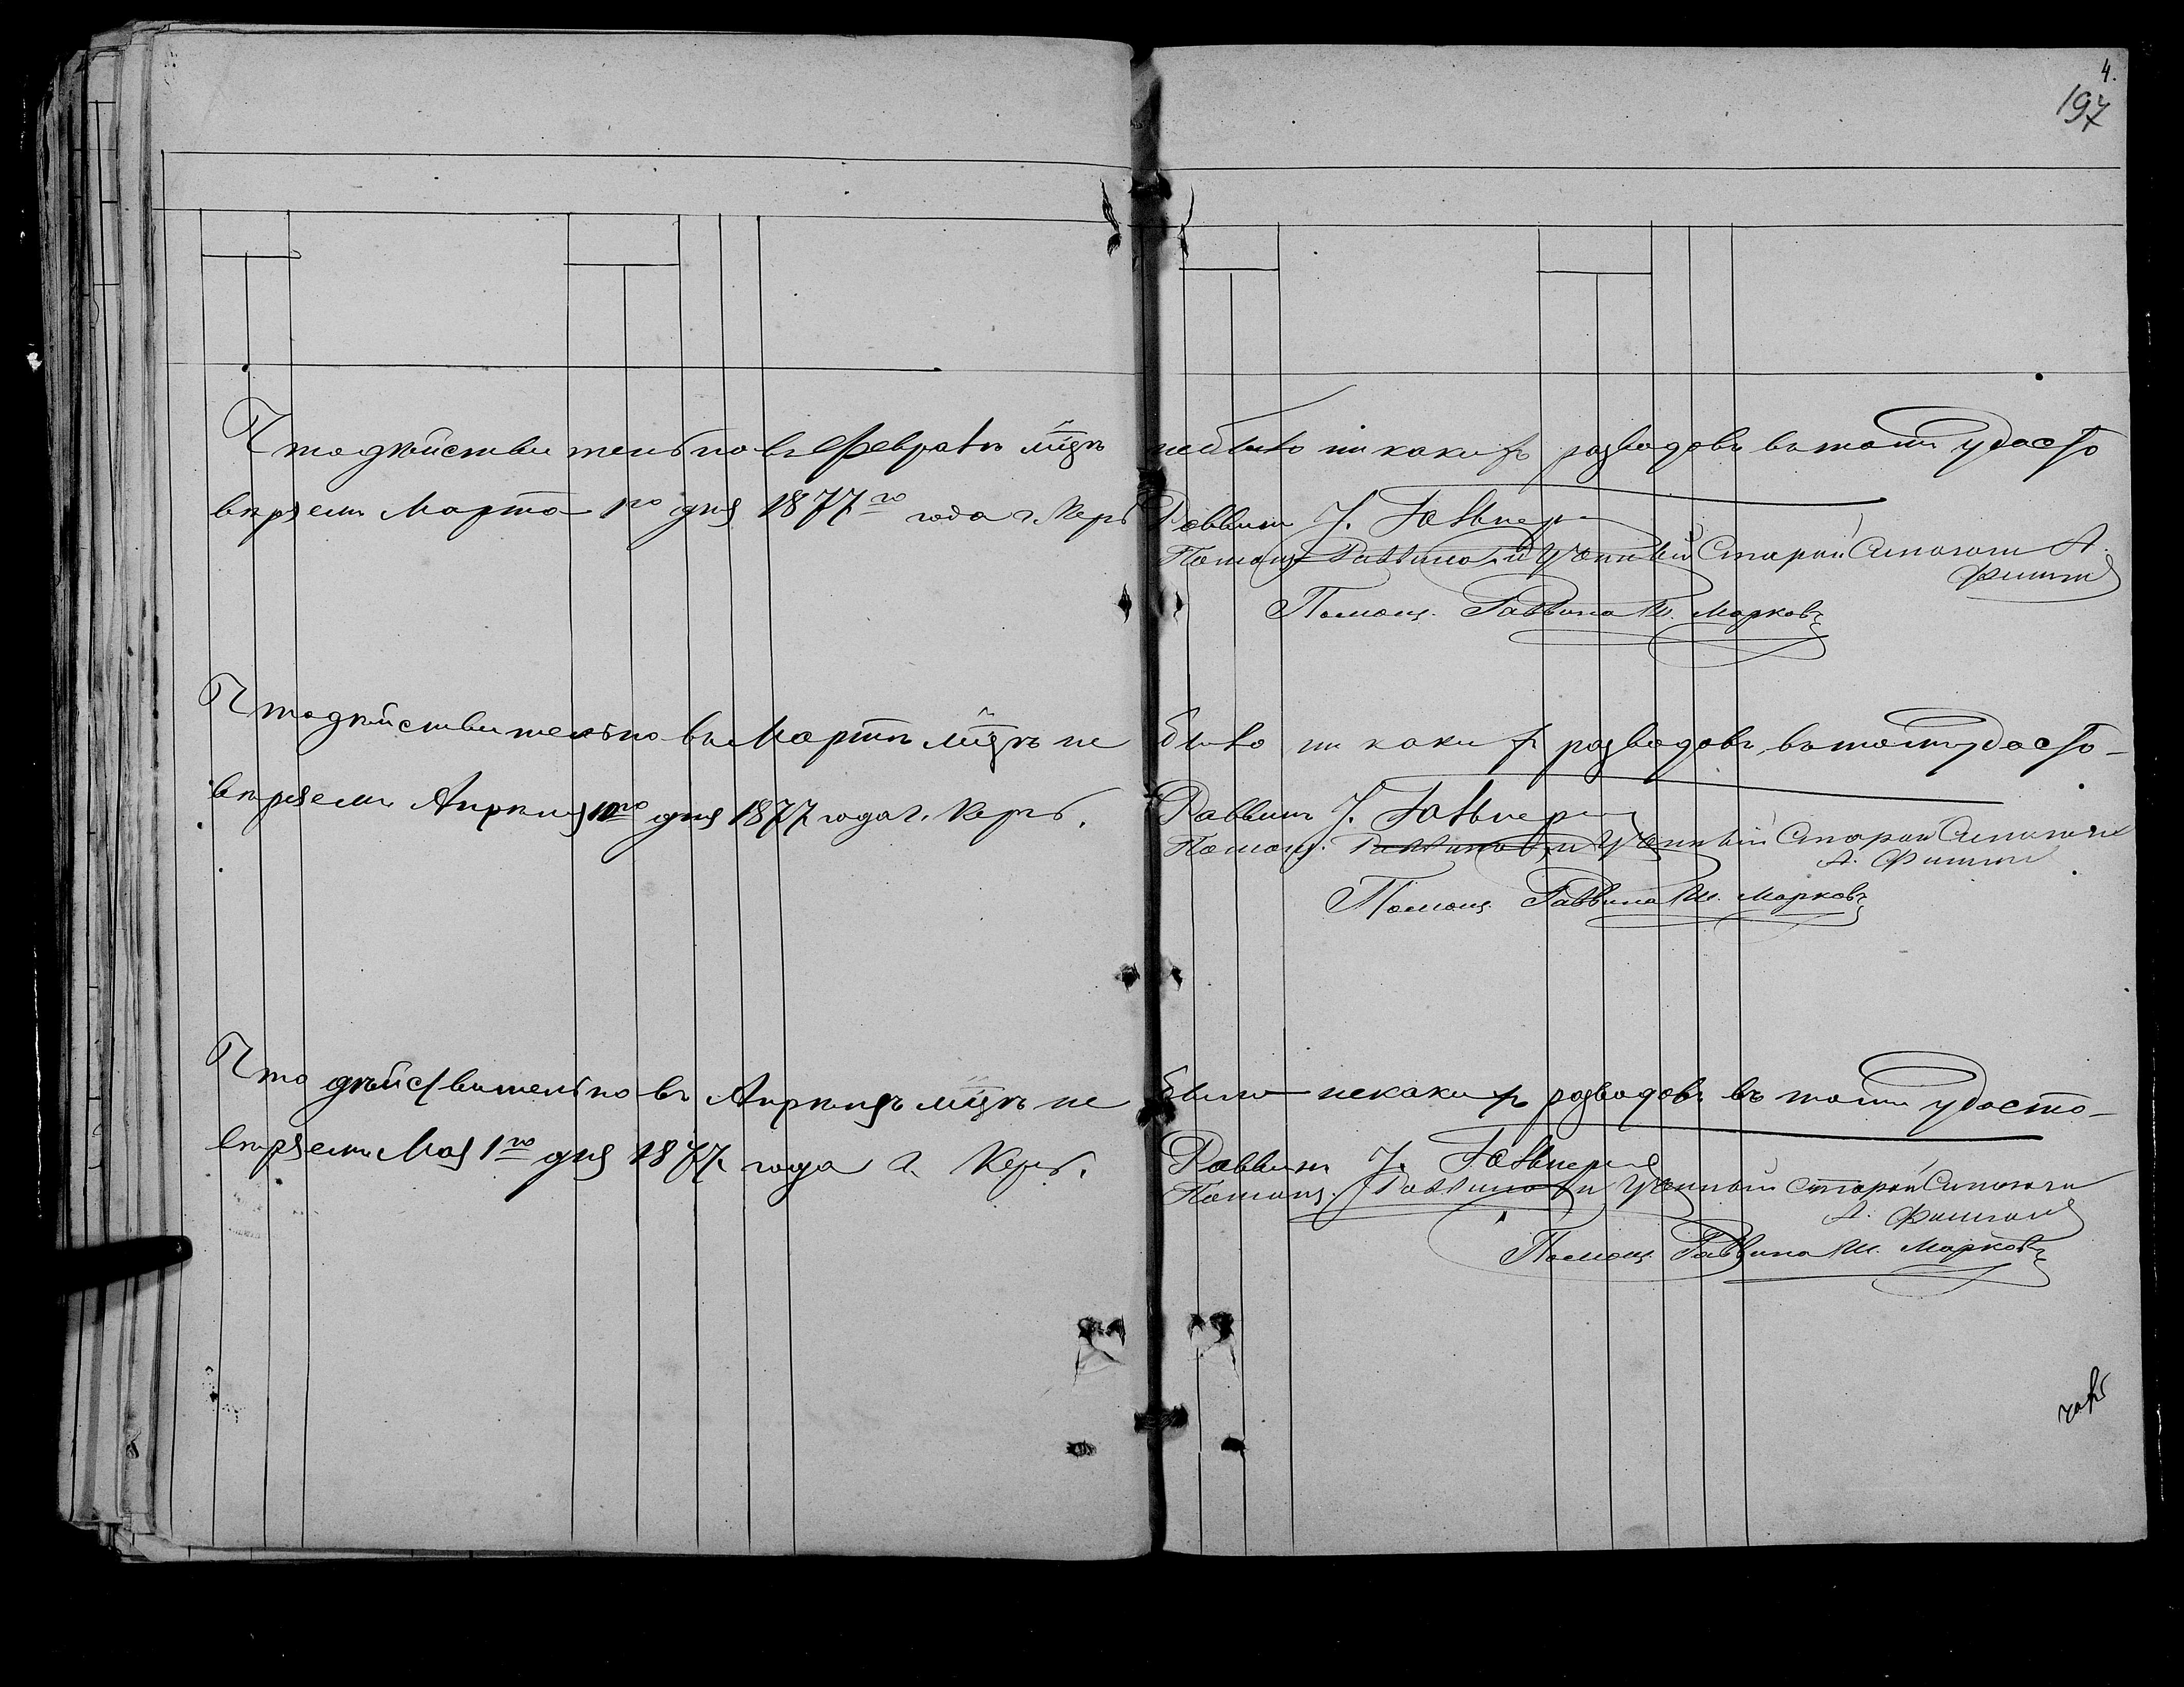 4.
197
Что дѣйствительно въ Февралѣ мцѣ небыло ни какихъ разводовъ въ томъ удосто
вѣряемъ Марта 1го дня 1877го года г. Керчь
Раввинъ
Помощ. Раввина и Ученный Старой Синогоги А.
Помощ. Раввина Ш. Марковъ
Что дѣйствительно въ Мартѣ мцѣ не было ни какихъ разводовъ въ томъ удосто-
вѣряемъ Апрѣля 1го дня 1877 года г. Керчь.
Раввинъ
Помощ. Раввина и Ученный Старой Синогоги
А.
Помощ. Раввина Ш. Марковъ
Что дѣйствительно въ Апрѣлѣ мцѣ не было некакихъ разводовъ въ томъ удосто-
вѣряемъ Мая 1го дня 1877 года г. Керчь.
Раввинъ
Помощ. Раввина и Ученный Старой Синогоги
А.
Помощ. Раввина Ш. Марковъ